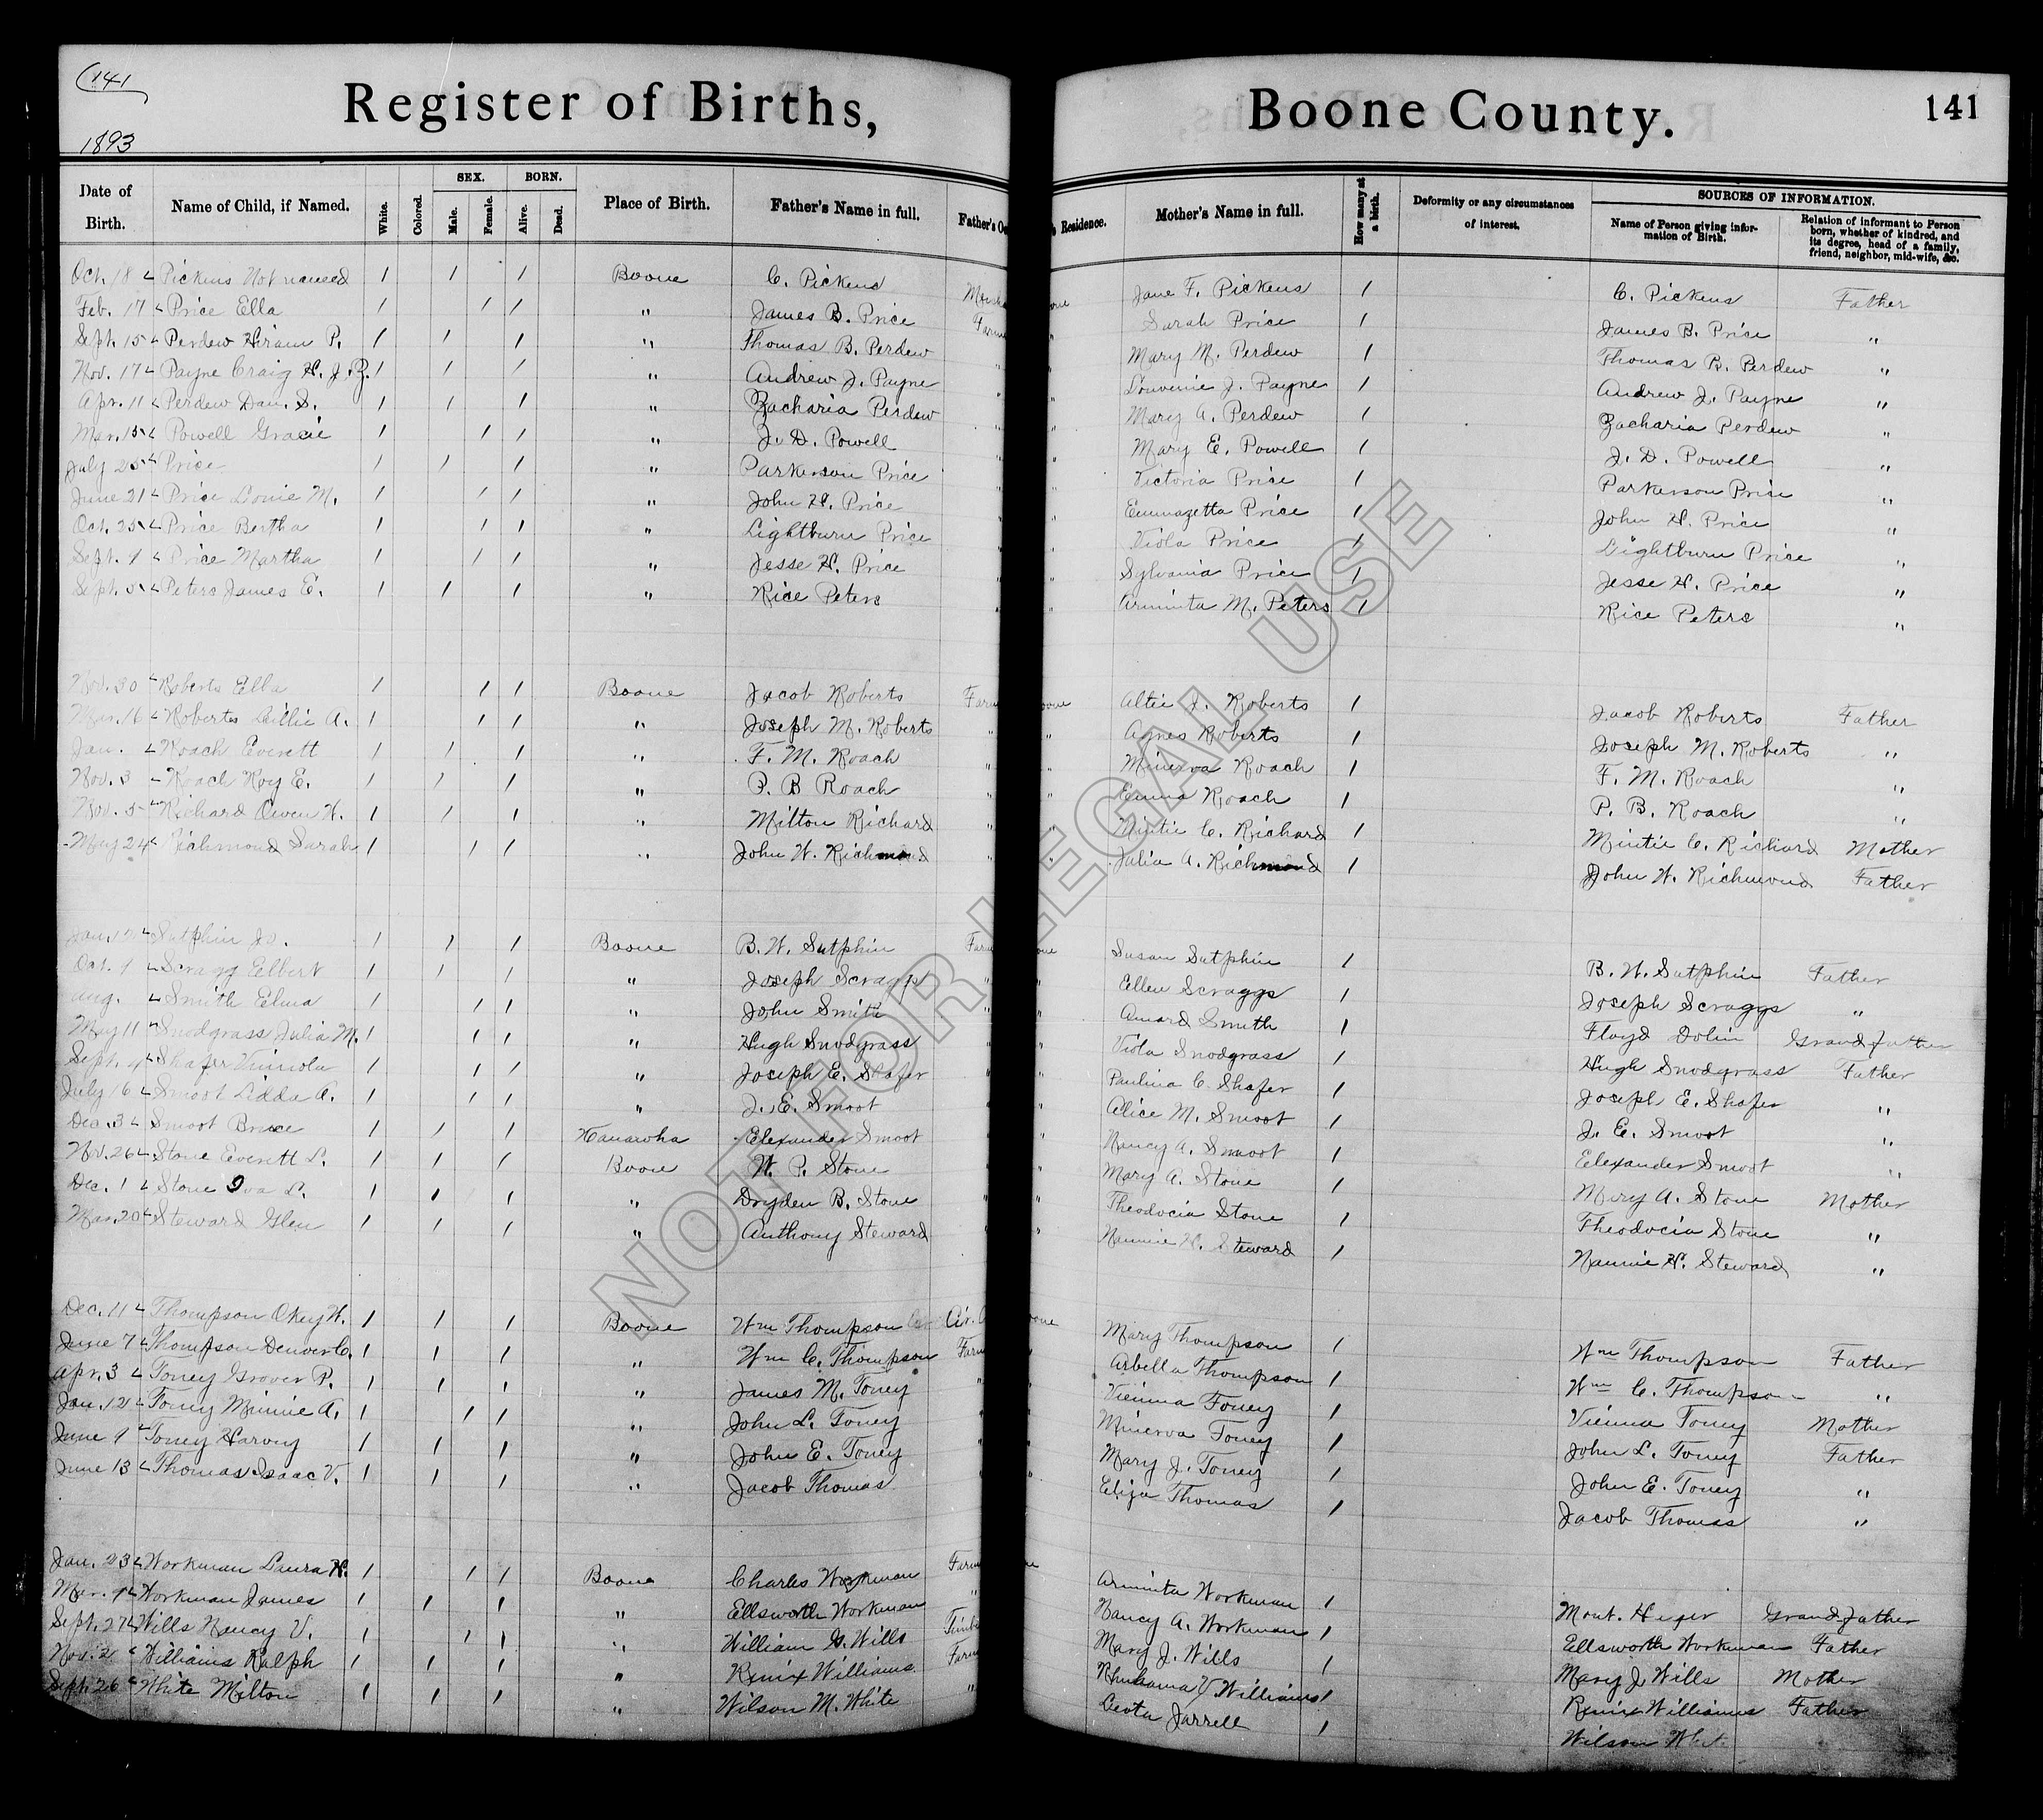 141
1893
Register of Births, Boone County. 141
Date of Birth. Name of Child, if Named. White. Colored. SEX. Male. Female. BORN. Alive. Dead. Place of Birth. Father's Name in full. Father's Oc Residence. Mother's Name in full. How many at a birth. Deformity or any circumstances of interest. SOURCES OF INFORMATION. Name of Person giving information of Birth. Relation of informant to Person born, whether of kindred, and its degree, head of a family, friend, neighbor, mid-wife, &c.
Oct. 18 Pickens Not named 1 1 1 Boone C. Pickens Jane F. Pickens 1 C. Pickens Father
Feb. 17 Price Ella 1 1 1 " James B. Price Farm " Sarah Price 1 James B. Price "
Sept. 15 Perdew Hiram P. 1 1 1 " Thomas B. Perdew " " Mary M. Perdew 1 Thomas B. Perdew "
Nov. 17 Payne Craig H. J. 1 1 1 " Andrew J. Payne " " Louvenie J. Payne 1 Andrew J. Payne "
Apr. 11 Perdew Dan. S. 1 1 1 " Zacharia Perdew " " Mary A. Perdew 1 Zacharia Perdew "
Mar. 15 Powell Gracie 1 1 1 " J. D. Powell " " Mary E. Powell 1 J. D. Powell "
July 25 Price 1 1 1 " Parkerson Price " " Victoria Price 1 Parkerson Price "
June 21 Price Louie M. 1 1 1 " John H. Price " " Emmazetta Price 1 John H. Price "
Oct. 25 Price Bertha 1 1 1 " Lightburn Price " " Viola Price 1 Lightburn Price "
Sept. 9 Price Martha 1 1 1 " Jesse H. Price " " Sylvania Price 1 Jesse H. Price "
Sept. 5 Peters James E. 1 1 1 " Rice Peters " " Arminta M. Peters 1 Rice Peters "
Nov. 30 Roberts Ella 1 1 1 Boone Jacob Roberts Farm oone Altie J. Roberts 1 Jacob Roberts Father
Mar. 16 Roberts Lillie A. 1 1 1 " Joseph M. Roberts " " Agnes Roberts 1 Joseph M. Roberts "
Jan. Roach Everett 1 1 1 " F. M. Roach " " Minerva Roach 1 F. M. Roach "
Nov. 3 Roach Roy E. 1 1 1 " P. B Roach " " Emma Roach 1 P. B. Roach "
Nov. 5 Richard Owen H. 1 1 1 " Milton Richard " " Mintie C. Richard 1 Mintie C. Richard Mother
May 24 Richmond Sarah 1 1 1 " John W. Richmond " " Julia A. Richmond 1 John W. Richmond Father
Jan. 12 Sutphin Jo. 1 1 1 Boone B. W. Sutphin Farm one Susan Sutphin 1 B. W. Sutphin Father
Oct. 9 Scragg Elbert 1 1 1 " Joseph Scraggs " " Ellen Scraggs 1 Joseph Scraggs "
Aug. Smith Elma 1 1 1 " John Smith " " Amard Smith 1 Floyd Dolin Grandfather
May 11 Snodgrass Julia M. 1 1 1 " Hugh Snodgrass " " Viola Snodgrass 1 Hugh Snodgrass Father
Sept. 4 Shafer 1 1 1 " Joseph E. Shafer " " Paulina C. Shafer 1 Joseph E. Shafer "
July 16 Smoot Lidda A. 1 1 1 " J. E. Smoot " " Alice M. Smoot 1 J. E. Smoot "
Dec. 3 Smoot Bruce 1 1 1 Kanawha Elexander Smoot " " Nancy A. Smoot 1 Elexander Smoot "
Nov. 26 Stone Everett L. 1 1 1 Boone W. P. Stone " " Mary A. Stone 1 Mary A. Stone Mother
Dec. 1 Stone Iva L. 1 1 1 " Dryden B. Stone " " Theodocia Stone 1 Theodocia Stone "
Mar. 20 Steward Glen 1 1 1 " Anthony Steward " " Nannie H. Steward 1 Nannie H. Steward "
Dec. 11 Thompson Okey W. 1 1 1 Boone Wm Thompson Cir. oone Mary Thompson 1 Wm Thompson Father
June 7 Thompson Denver C. 1 1 1 " Wm C. Thompson Farm " Arbella Thompson 1 Wm C. Thompson "
Apr. 3 Toney Grover P. 1 1 1 " James M. Toney " " Vienna Toney 1 Vienna Toney Mother
Jan. 12 Toney Minnie A. 1 1 1 " John L. Toney " " Minerva Toney 1 John L. Toney Father
June 9 Toney Harvey 1 1 1 " John E. Toney " " Mary J. Toney 1 John E. Toney "
June 13 Thomas Isaac V. 1 1 1 " Jacob Thomas " Eliza Thomas 1 Jacob Thomas "
Jan. 23 Workman Laura H. 1 1 1 Boone Charles Workman Farm Arminta Workman 1 Mont. Hager Grand-father
Mar. 9 Workman James 1 1 1 " Ellsworth Workman " Nancy A. Workman 1 Ellsworth Workman Father
Sept. 27 Wills Nancy V. 1 1 1 " William G. Wills Timb Mary J. Wills 1 Mary J. Wills Mother
Nov. 2 Williams Ralph 1 1 1 " Renix Williams Farm Rhuhama V. Williams 1 Renix Williams Father
Sept. 26 White Milton 1 1 1 " Wilson M. White " Leota Jarrell 1 Wilson White
NOT FOR LEGAL USE